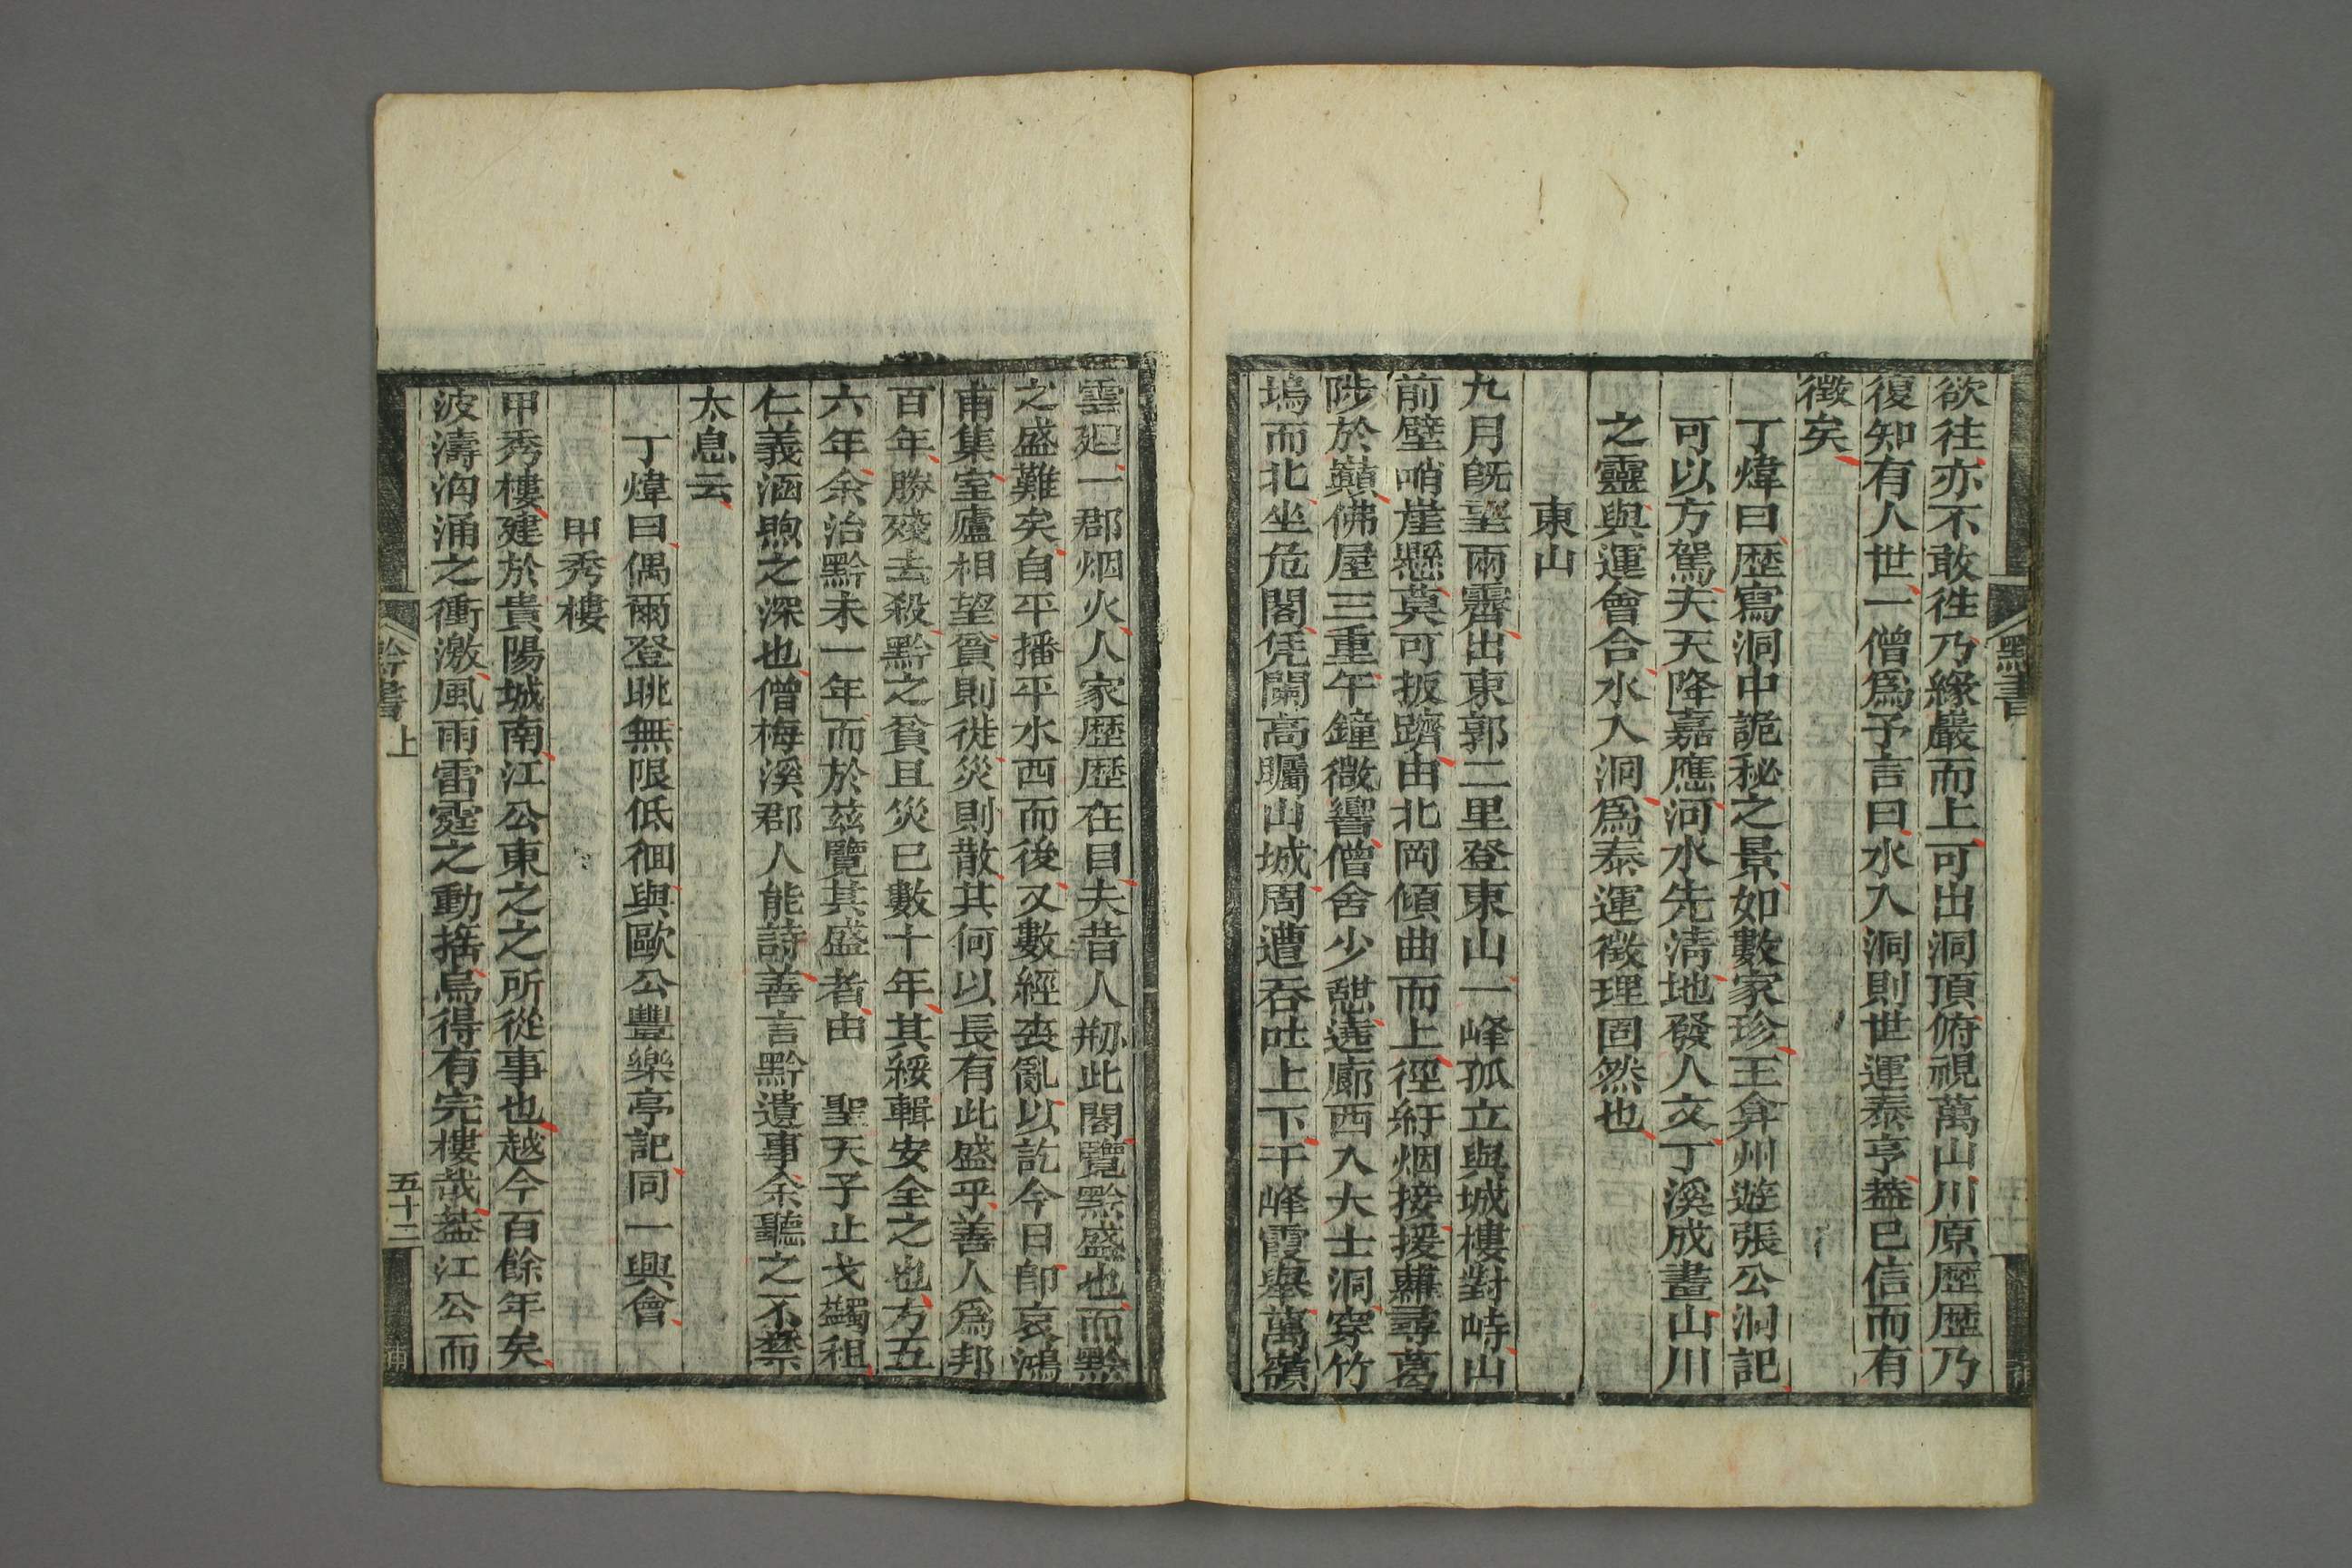 欲往亦不敢徃乃緣巖而上可出洞頂俯視萬山川原歷歷乃
復知有人世一僧爲予言曰水入洞則世運泰亨葢已信而有
徵矣
丁煒曰歷寫洞中詭秘之景如數家珍王弇州遊張公洞記
可以方駕夫天降嘉應河水先淸地發人文丁溪成畫山川
之靈與運會合水入洞爲泰運徵理固然也
東山
九月旣望雨霽出東郭二里登東山一峰孤立與城樓對峙山
前壁哨崖懸莫可扳躋由北岡傾曲而上徑紆烟接援蘿尋葛
陟於巔佛屋三重午鐘微響僧舍少憇遶廊西入大士洞穿竹
塢而北坐危閣凭闌高矚山城周遭吞吐上下千峰霞舉萬嶺
雲廻一郡烟火人家歷歷在目夫昔人刱此閣覽黔盛也而黔
之盛難矣自平播平水西而後又數經丧亂以訖今日卽哀鴻
甫集室廬相望貧則徙災則散其何以長有此盛乎善人爲邦
百年勝殘去殺黔之貧且災已數十年其綏輯安全之也方五
六年余治黔未一年而於兹覽其盛者由 聖天子止戈蠲租
仁義涵煦之深也僧梅溪郡人能詩善言黔遺事余聽之不禁
太息云
丁煒曰偶爾登眺無限低徊與歐公豐樂亭記同一興會
甲秀樓
甲秀樓建於貴陽城南江公東之之所從事也越今百餘年矣
波濤洶涌之衝激風雨雷霆之動搖烏得有完樓哉葢江公而
黔書 上
五十三